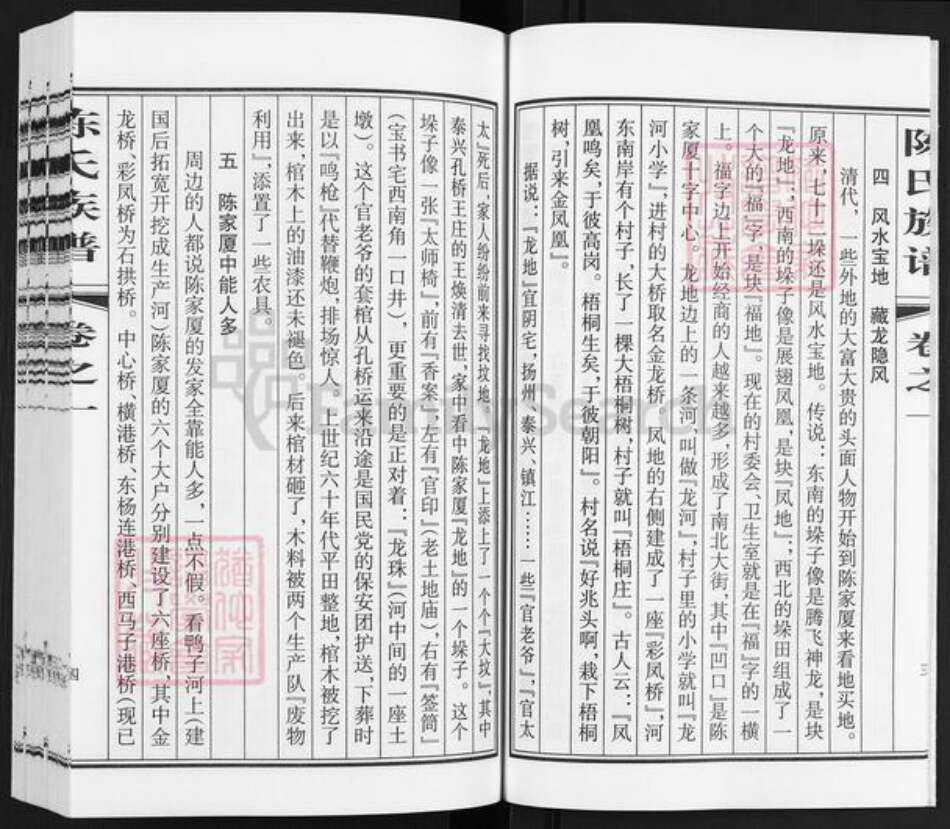 陈氏族谱 卷之一
三
四 风水宝地 藏龙隐风
清代，一些外地的大富大贵的头面人物开始到陈家厦来看地买地。
原来，七十二垛还是风水宝地。传说：东南的垛子像是腾飞神龙，是块
『龙地』；西南的垛子像是展翅凤凰，是块『凤地』；西北的垛田组成了一
个大的『福』字，是块『福地』。现在的村委会、卫生室就是在『福』字的一横
上。福字边上开始经商的人越来越多，形成了南北大街，其中『凹口』是陈
家厦十字中心。龙地边上的一条河，叫做『龙河』，村子里的小学就叫『龙
河小学』；进村的大桥取名金龙桥，凤地的右侧建成了一座『彩凤桥』，河
东南岸有个村子，长了一棵大梧桐树，村子就叫『梧桐庄』。古人云：『凤
凰鸣矣，于彼高岗。梧桐生矣，于彼朝阳』。村名说『好兆头啊，栽下梧桐
树，引来金凤凰』。
据说：『龙地』宜阴宅，扬州、泰兴、镇江……一些『官老爷』，『官太
太』死后，家人纷纷前来寻找坟地，『龙地』上添上了一个个『大坟』，其中
泰兴孔桥王庄的王焕清去世，家中看中陈家厦『龙地』的一个垛子。这个
垛子像一张『太师椅』，前有『香案』，左有『官印』（老土地庙），右有『签筒』
（宝书宅西南角一口井），更重要的是正对着：『龙珠』（河中间的一座土
墩）。这个官老爷的套棺从孔桥运来沿途是国民党的保安团护送，下葬时
是以『鸣枪』代替鞭炮，排场惊人。上世纪六十年代平田整地，棺木被挖了
出来，棺木上的油漆还未褪色。后来棺材砸了，木料被两个生产队『废物
利用』，添置了一些农具。
五 陈家厦中能人多
周边的人都说陈家厦的发家全靠能人多，一点不假。看鸭子河上（建
国后拓宽开挖成生产河）陈家厦的六个大户分别建设了六座桥，其中金
龙桥、彩凤桥为石拱桥。中心桥、横港桥、东杨连港桥、西马子港桥（现已
陈氏族谱 卷之一
四
FamilySearch